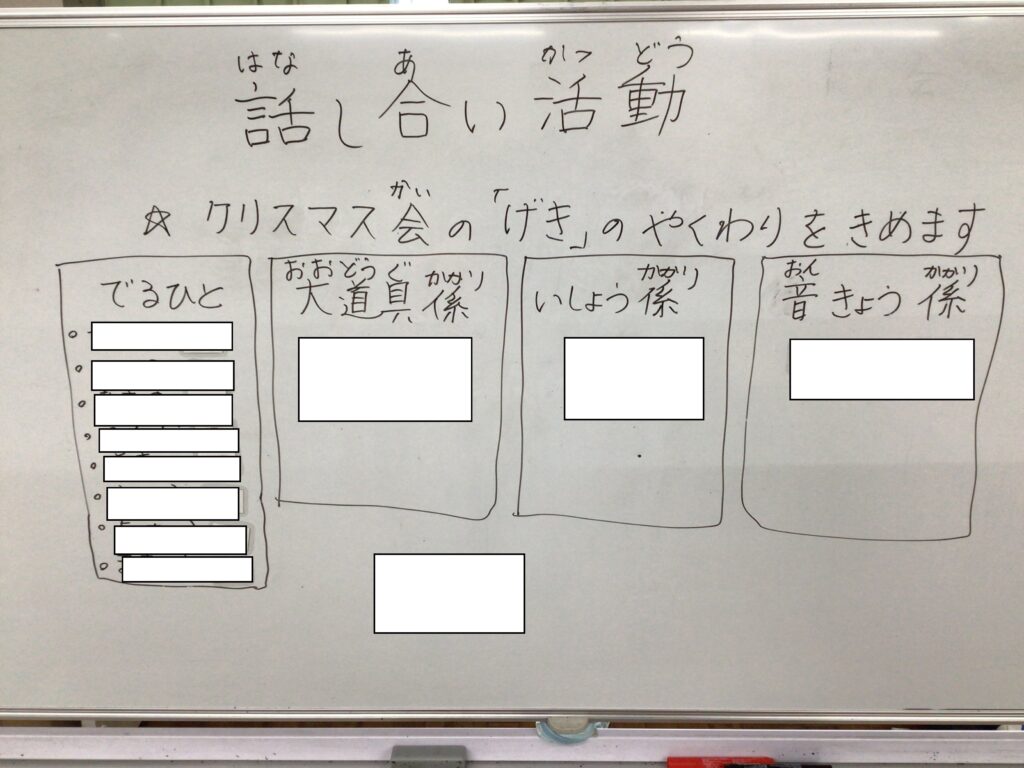 はな あ かつ どう
話し合い活動
かい
☆ クリスマス会の「げき」のやくわりをきめます
でるひと
おおどうぐ かかり
大道具係
かかり
いしょう係
おん かかり
音きょう係